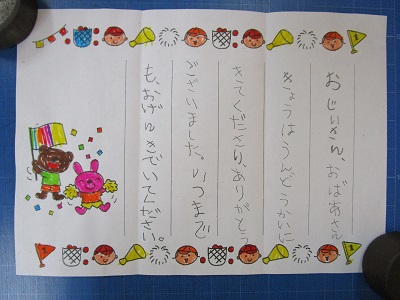 おじいさん、おばあさん
きょうはうんどうかいに
きてくださり、ありがとう
ございました。いつまで
も、おげんきでいてください。